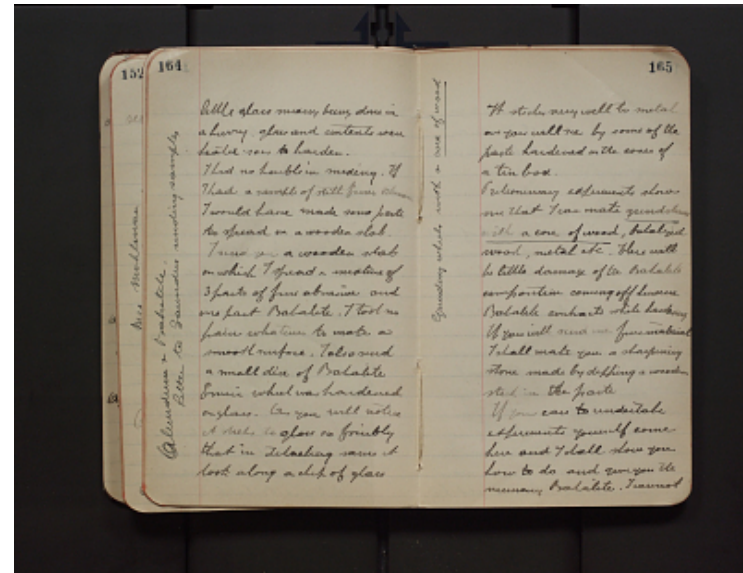 152
164
Alundum + Bakalite.
Letter to Saunders sending sample
little glass mixing being done in
a hurry. glass and contents were
heated now to harden.
I had no trouble in mixing. If
I had a sample of still finer
I would have made some paste
to spread on a wooden slab.
I send you a wooden slab
on which I spread a mixture of
3 parts of fine abrasive and
one part Bakalite. I took no
pains whatever to make a
smooth surface. I also send
a small disc of Bakalite
Emery wheel was hardened
on glass. As you will notice
it sticks to glass so forcibly
that in detaching same it
took along a chip of glass
165
Grinding wheels with a core of wood
It sticks very well to metal
as you will see by some of the
paste hardened on the cover of
a tin box.
Preliminary experiments shows
me that I can make grindstones
with a core of wood, Bakalized
wood, metal etc. There will
be little damage of the Bakalite
composition coming off because
Bakalite contracts while hardening
If you will send me finer material
I shall make you a sharpening
stone made by dipping a wooden
stick in the paste.
If you care to undertake
experiments yourself come
here and I shall show you
how to do and give you the
necessary Bakalite. I cannot